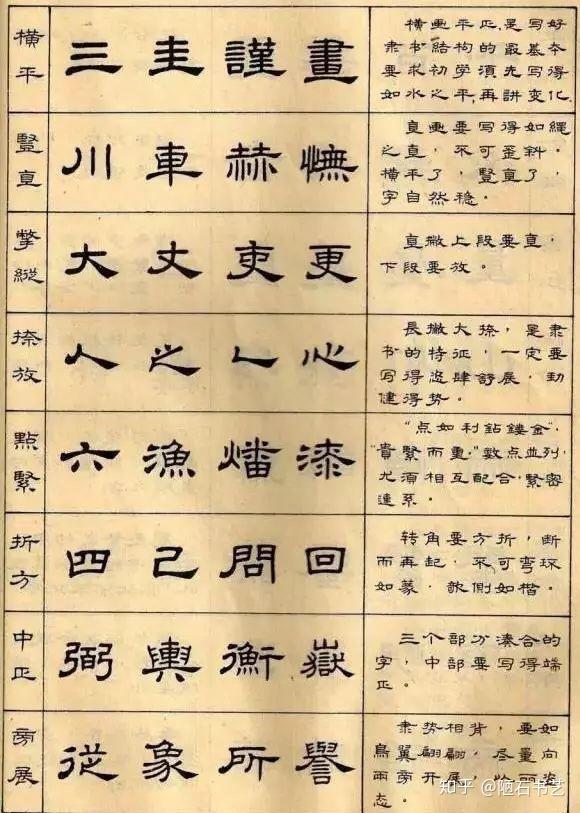 橫平
三圭謹畫
橫画平正,是写好
隶书結构的最基本
要求初学須先写得
如水之平,再講变化.
豎直
川車赫憮
直画要写得如繩
之直,不可歪斜。
橫平了,豎直了,
字自然稳。
撆縱
大丈吏更
直撇上段要直,
下段要放。
捺放
人之乚心
長撇大捺,是隶
书的特征,一定要
写得恣肆舒展,劲
健得势。
點緊
六漁燔漆
"点如利鉆鏤金",
"貴緊而重。"数点並列,
尤須相互配合,緊密
連系。
折方
四己問回
转角要方折,断
而再起,不可弯环
如篆,欹側如楷。
中正
弼輿衡嶽
三个部分湊合的
字,中部要写得端
正。
旁展
從象所譽
隶势相背,要如
鳥翼翩翩,尽量向
兩旁开展,姿
态。
知乎 @陋石书艺